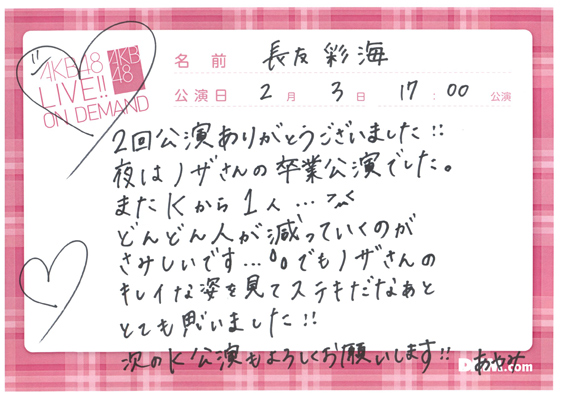 AKB48
LIVE!!
ON DEMAND
AKB
48
名前 長友 彩海
公演日 2月 3日 17:00 公演
2回公演ありがとうございました!!
夜はノザさんの卒業公演でした。
またKから1人…
どんどん人が減っていくのが
さみしいです…。でもノザさんの
キレイな姿を見てステキだなぁと
とても思いました!!
次のK公演もよろしくお願いします!! あやみ
.com